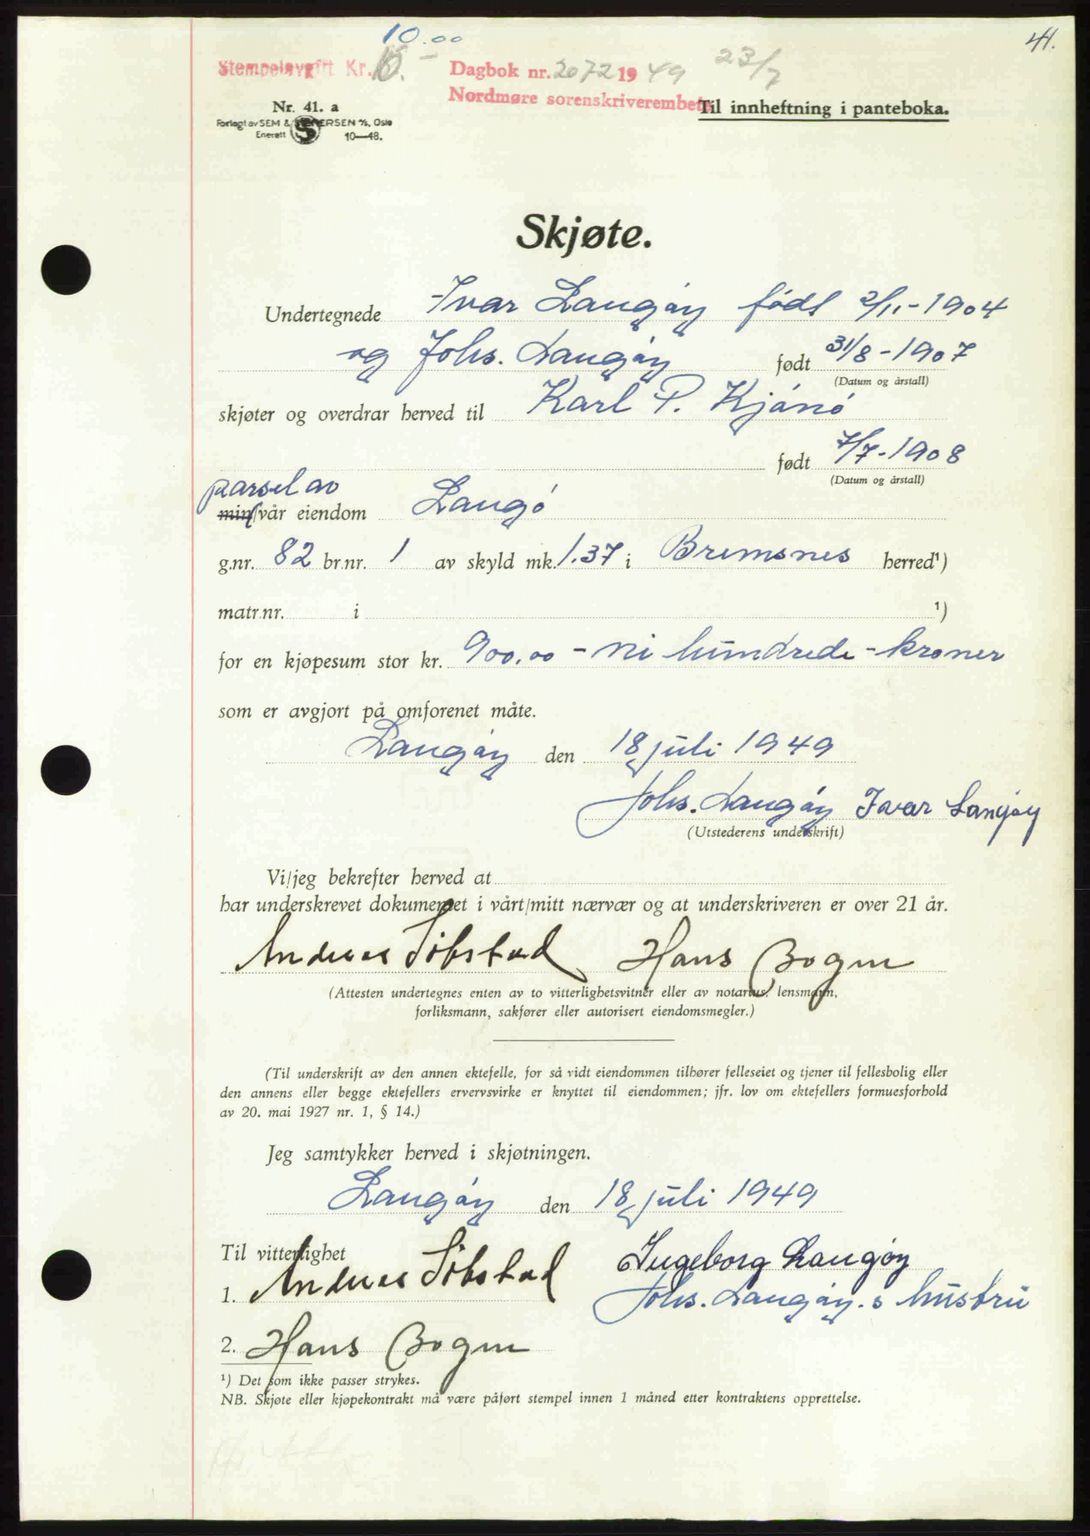 10.00
41.
Stempelavgift Kr. Dagbok nr. 2072 1949 23/7
Nordmøre sorenskriverembete
Til innheftning i panteboka.
Nr. 41. a
Forlagt av SEM & STENERSEN A/S, Oslo
Enerett 10—48.
Skjøte.
Undertegnede Ivar Langøy født 2/11-1904
og Johs. Langøy født 31/8-1907
(Datum og årstall)
skjøter og overdrar herved til Karl P. Kjønø
født 7/7-1908
(Datum og årstall)
parsel av
min/vår eiendom Langø
g.nr. 82 br.nr. 1 av skyld mk. 1.37 i Bremsnes herred¹)
matr.nr. i ¹)
for en kjøpesum stor kr. 900.00 - ni hundrede - kroner
som er avgjort på omforenet måte.
Langøy den 18 juli 1949
Johs. Langøy Ivar Langøy
(Utstederens underskrift)
Vi/jeg bekrefter herved at
har underskrevet dokumentet i vårt/mitt nærvær og at underskriveren er over 21 år.
Andreas Søbstad Hans Bogen
(Attesten undertegnes enten av to vitterlighetsvitner eller av notarius, lensmann,
forliksmann, sakfører eller autorisert eiendomsmegler.)
(Til underskrift av den annen ektefelle, for så vidt eiendommen tilhører felleseiet og tjener til fellesbolig eller
den annens eller begge ektefellers ervervsvirke er knyttet til eiendommen; jfr. lov om ektefellers formuesforhold
av 20. mai 1927 nr. 1, § 14.)
Jeg samtykker herved i skjøtningen.
Langøy den 18 juli 1949
Til vitterlighet Ingeborg Langøy
1. Andreas Søbstad Johs. Langøy.s hustru
2. Hans Bogen
¹) Det som ikke passer strykes.
NB. Skjøte eller kjøpekontrakt må være påført stempel innen 1 måned etter kontraktens opprettelse.